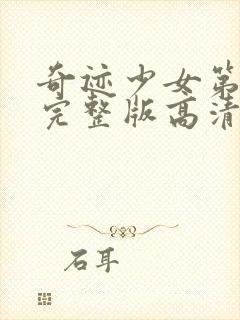 奇迹少女第
完整版高清
石耳